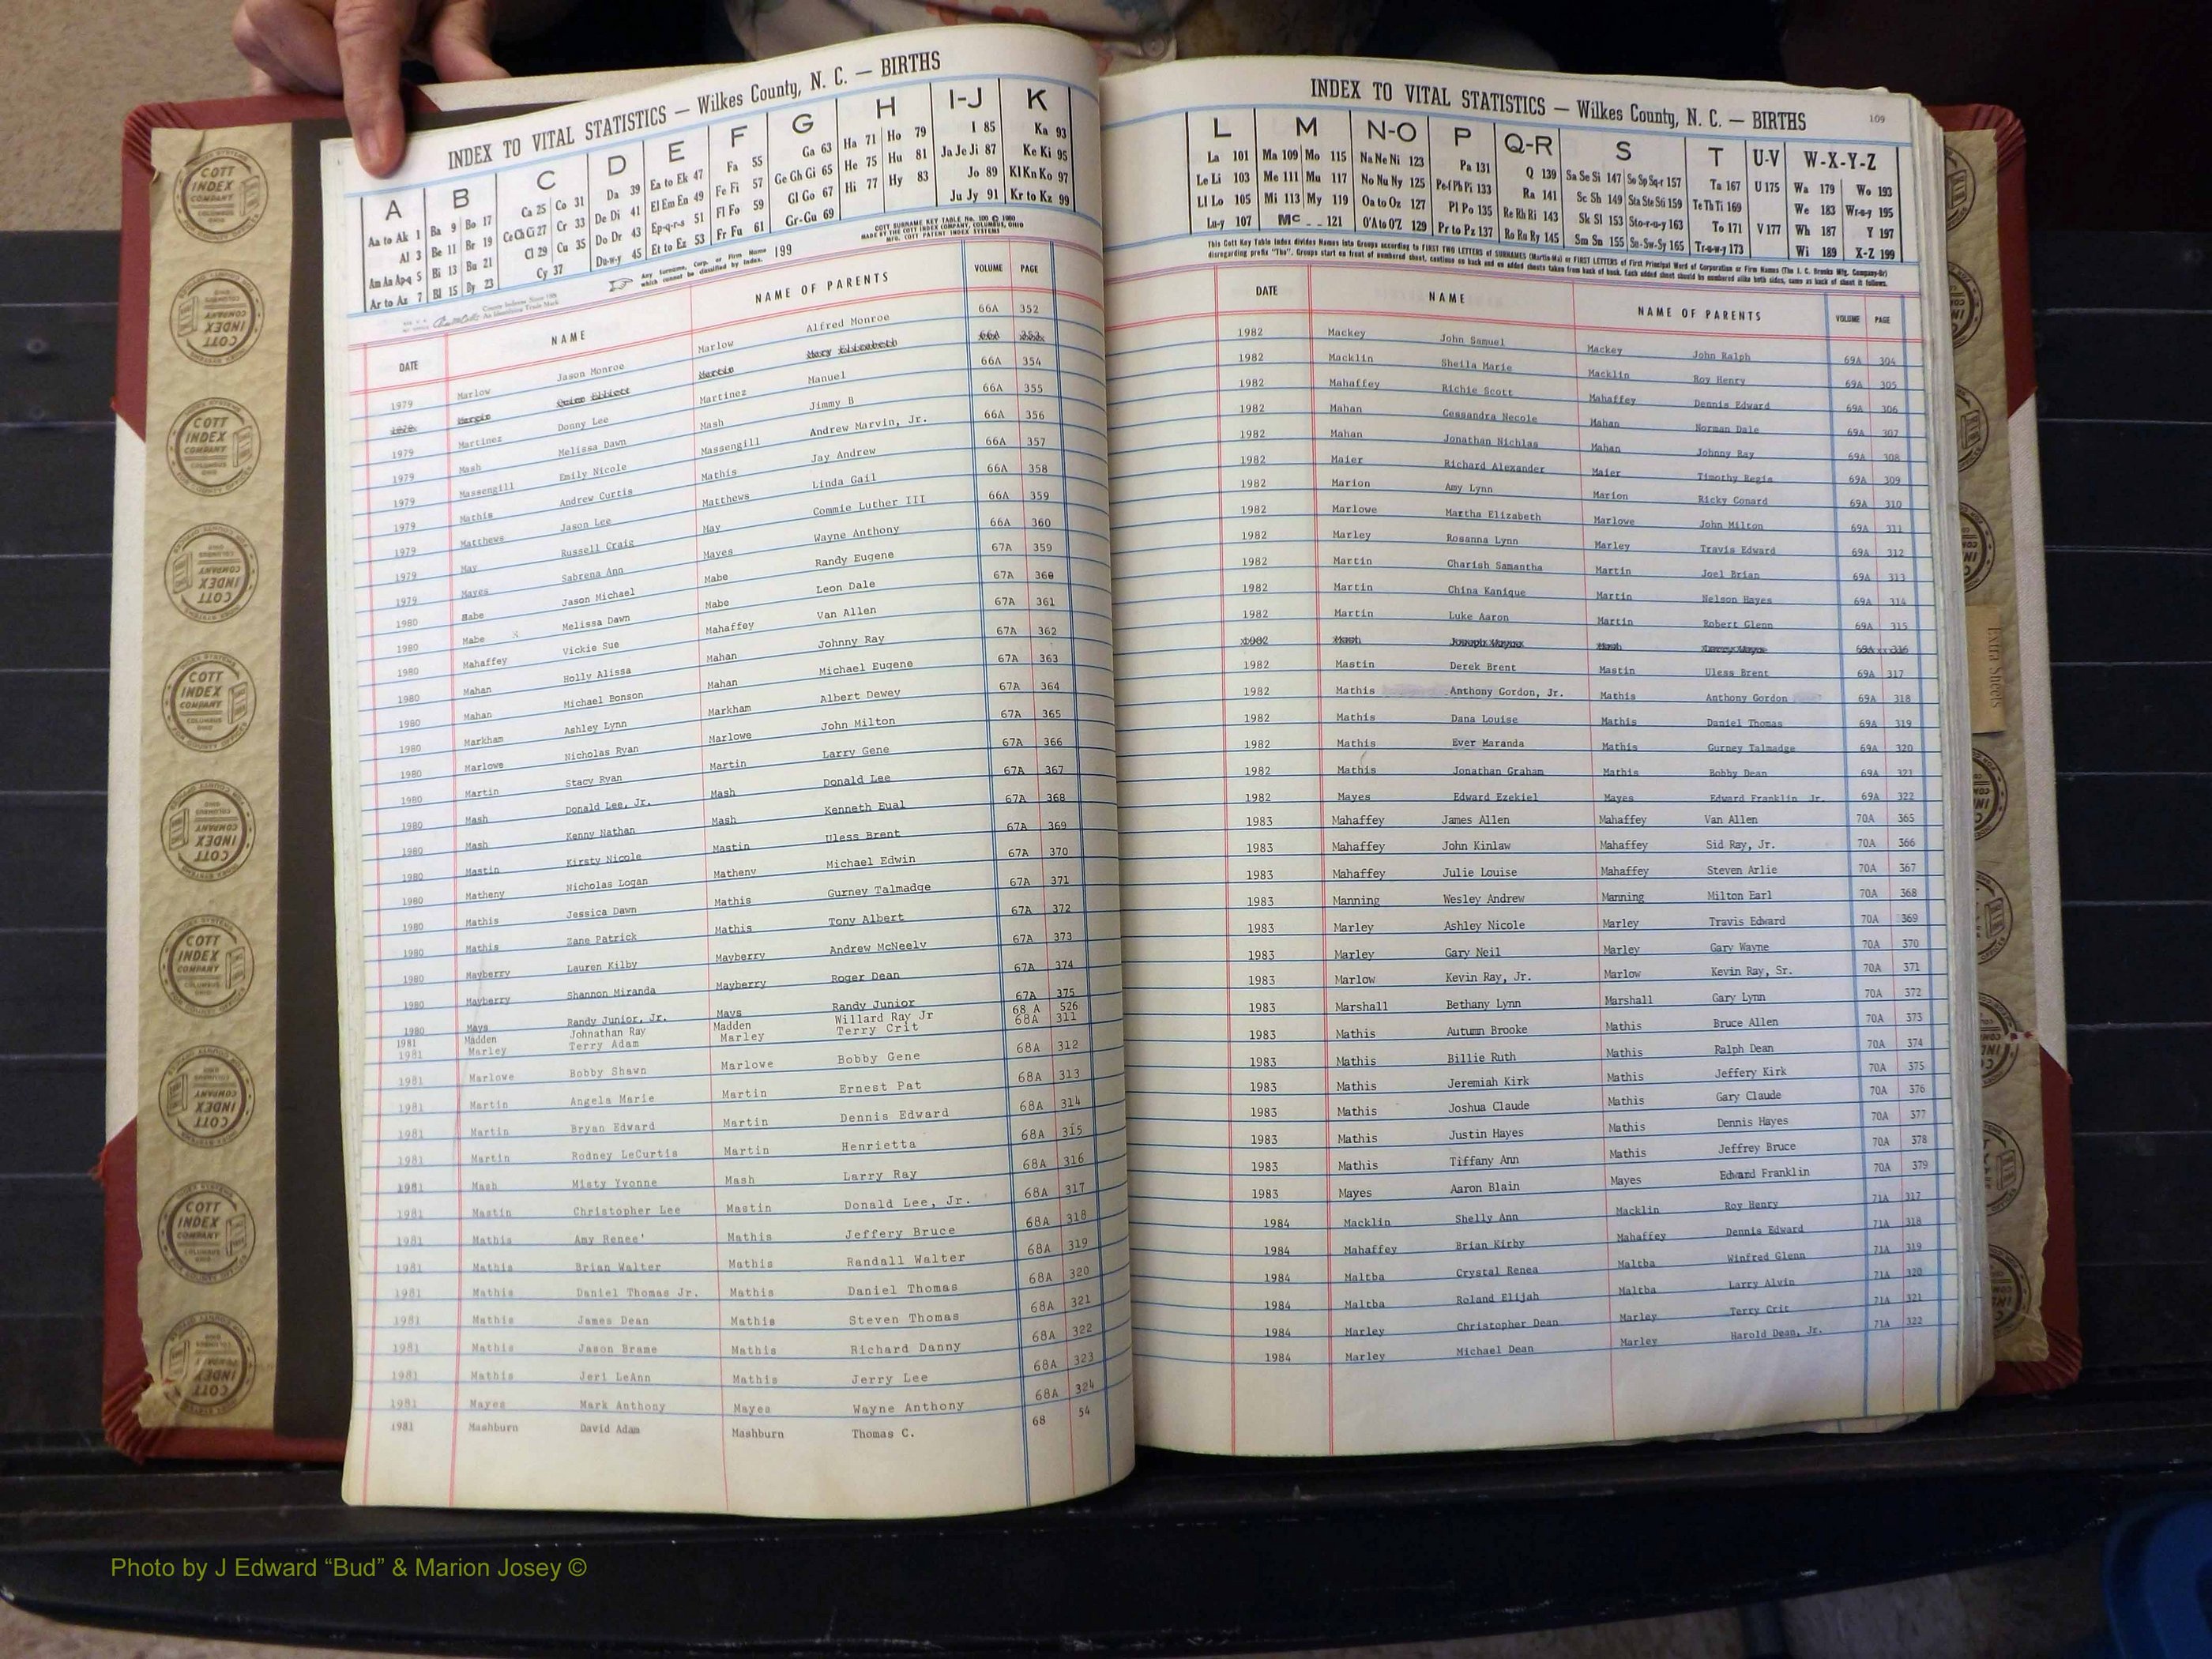 INDEX TO VITAL STATISTICS — Wilkes County, N. C. — BIRTHS
A B C D E F G H I-J K
Aa to Ak 1 Ba 9 Bo 17 Ca 25 Co 31 Da 39 Ea to Ek 47 Fa 55 Ga 63 Ha 71 Ho 79 I 85 Ka 93
Al 3 Be 11 Br 19 Ce Ch Ci 27 Cr 33 De Di 41 El Em En 49 Fe Fi 57 Ge Gh Gi 65 He 75 Hu 81 Ja Je Ji 87 Ke Ki 95
Am An Ap-q 5 Bi 13 Bu 21 Cl 29 Cu 35 Do Dr 43 Ep-q-r-s 51 Fl Fo 59 Gl Go 67 Hi 77 Hy 83 Jo 89 Kl Kn Ko 97
Ar to Az 7 Bl 15 By 23 Cy 37 Du-w-y 45 Et to Ez 53 Fr Fu 61 Gr-Gu 69 Ju Jy 91 Kr to Kz 99
Any Surname, Corp. or Firm Name which cannot be classified by Index. 199
COTT SURNAME KEY TABLE No. 100 © 1980
MADE BY THE COTT INDEX COMPANY, COLUMBUS, OHIO
MFG. COTT PATENT INDEX SYSTEMS
DATE NAME NAME OF PARENTS VOLUME PAGE
1979 Marlow Jason Monroe Marlow Alfred Monroe 66A 352
1979 Martinez Donny Lee Martinez Manuel 66A 354
1979 Mash Melissa Dawn Mash Jimmy B 66A 355
1979 Massengill Emily Nicole Massengill Andrew Marvin, Jr. 66A 356
1979 Mathis Andrew Curtis Mathis Jay Andrew 66A 357
1979 Matthews Jason Lee Matthews Linda Gail 66A 358
1979 May Russell Craig May Commie Luther III 66A 359
1979 Mayes Sabrena Ann Mayes Wayne Anthony 66A 360
1980 Mabe Jason Michael Mabe Randy Eugene 67A 359
1980 Mabe Melissa Dawn Mabe Leon Dale 67A 360
1980 Mahaffey Vickie Sue Mahaffey Van Allen 67A 361
1980 Mahan Holly Alissa Mahan Johnny Ray 67A 362
1980 Mahan Michael Bonson Mahan Michael Eugene 67A 363
1980 Markham Ashley Lynn Markham Albert Dewey 67A 364
1980 Marlowe Nicholas Ryan Marlowe John Milton 67A 365
1980 Martin Stacy Ryan Martin Larry Gene 67A 366
1980 Mash Donald Lee, Jr. Mash Donald Lee 67A 367
1980 Mash Kenny Nathan Mash Kenneth Eual 67A 368
1980 Mastin Kirsty Nicole Mastin Uless Brent 67A 369
1980 Matheny Nicholas Logan Matheny Michael Edwin 67A 370
1980 Mathis Jessica Dawn Mathis Gurney Talmadge 67A 371
1980 Mathis Zane Patrick Mathis Tony Albert 67A 372
1980 Mayberry Lauren Kilby Mayberry Andrew McNeely 67A 373
1980 Mayberry Shannon Miranda Mayberry Roger Dean 67A 374
1980 Mays Randy Junior, Jr. Mays Randy Junior 67A 375
1981 Madden Johnathan Ray Madden Willard Ray Jr 68 A 526
1981 Marley Terry Adam Marley Terry Crit 68A 311
1981 Marlowe Bobby Shawn Marlowe Bobby Gene 68A 312
1981 Martin Angela Marie Martin Ernest Pat 68A 313
1981 Martin Bryan Edward Martin Dennis Edward 68A 314
1981 Martin Rodney LeCurtis Martin Henrietta 68A 315
1981 Mash Misty Yvonne Mash Larry Ray 68A 316
1981 Mastin Christopher Lee Mastin Donald Lee, Jr. 68A 317
1981 Mathis Amy Renee' Mathis Jeffery Bruce 68A 318
1981 Mathis Brian Walter Mathis Randall Walter 68A 319
1981 Mathis Daniel Thomas Jr. Mathis Daniel Thomas 68A 320
1981 Mathis James Dean Mathis Steven Thomas 68A 321
1981 Mathis Jason Brame Mathis Richard Danny 68A 322
1981 Mathis Jeri LeAnn Mathis Jerry Lee 68A 323
1981 Mayes Mark Anthony Mayes Wayne Anthony 68A 324
1981 Mashburn David Adam Mashburn Thomas C. 68 54
INDEX TO VITAL STATISTICS — Wilkes County, N. C. — BIRTHS 109
L M N-O P Q-R S T U-V W-X-Y-Z
La 101 Ma 109 Mo 115 Na Ne Ni 123 Pa 131 Q 139 Sa Se Si 147 So Sp Sq-r 157 Ta 167 U 175 Wa 179 Wo 193
Le Li 103 Me 111 Mu 117 No Nu Ny 125 Pe-f Ph Pi 133 Ra 141 Sc Sh 149 Sta Ste Sti 159 Te Th Ti 169 We 183 Wr-u-y 195
Ll Lo 105 Mi 113 My 119 Oa to Oz 127 Pl Po 135 Re Rh Ri 143 Sk Sl 153 Sto-r-u-y 163 To 171 V 177 Wh 187 Y 197
Lu-y 107 Mc 121 O'A to O'Z 129 Pr to Pz 137 Ro Ru Ry 145 Sm Sn 155 Su-Sw-Sy 165 Tr-u-w-y 173 Wi 189 X-Z 199
This Cott Key Table Index divides Names into Groups according to FIRST TWO LETTERS of SURNAMES (Martin-Ma) or FIRST LETTERS of First Principal Word of Corporation or Firm Names (The I. C. Brooks Mfg. Company-Br)
disregarding prefix "The". Groups start on front of numbered sheet, continue on back and on added sheets taken from back of book. Each added sheet should be numbered alike both sides, same as back of sheet it follows.
DATE NAME NAME OF PARENTS VOLUME PAGE
1982 Mackey John Samuel Mackey John Ralph 69A 304
1982 Macklin Sheila Marie Macklin Roy Henry 69A 305
1982 Mahaffey Richie Scott Mahaffey Dennis Edward 69A 306
1982 Mahan Cassandra Necole Mahan Norman Dale 69A 307
1982 Mahan Jonathan Nichlas Mahan Johnny Ray 69A 308
1982 Maier Richard Alexander Maier Timothy Regis 69A 309
1982 Marion Amy Lynn Marion Ricky Conard 69A 310
1982 Marlowe Martha Elizabeth Marlowe John Milton 69A 311
1982 Marley Rosanna Lynn Marley Travis Edward 69A 312
1982 Martin Charish Samantha Martin Joel Brian 69A 313
1982 Martin China Kanique Martin Nelson Hayes 69A 314
1982 Martin Luke Aaron Martin Robert Glenn 69A 315
1982 Mastin Derek Brent Mastin Uless Brent 69A 317
1982 Mathis Anthony Gordon, Jr. Mathis Anthony Gordon 69A 318
1982 Mathis Dana Louise Mathis Daniel Thomas 69A 319
1982 Mathis Ever Maranda Mathis Gurney Talmadge 69A 320
1982 Mathis Jonathan Graham Mathis Bobby Dean 69A 321
1982 Mayes Edward Ezekiel Mayes Edward Franklin Jr. 69A 322
1983 Mahaffey James Allen Mahaffey Van Allen 70A 365
1983 Mahaffey John Kinlaw Mahaffey Sid Ray, Jr. 70A 366
1983 Mahaffey Julie Louise Mahaffey Steven Arlie 70A 367
1983 Manning Wesley Andrew Manning Milton Earl 70A 368
1983 Marley Ashley Nicole Marley Travis Edward 70A 369
1983 Marley Gary Neil Marley Gary Wayne 70A 370
1983 Marlow Kevin Ray, Jr. Marlow Kevin Ray, Sr. 70A 371
1983 Marshall Bethany Lynn Marshall Gary Lynn 70A 372
1983 Mathis Autumn Brooke Mathis Bruce Allen 70A 373
1983 Mathis Billie Ruth Mathis Ralph Dean 70A 374
1983 Mathis Jeremiah Kirk Mathis Jeffery Kirk 70A 375
1983 Mathis Joshua Claude Mathis Gary Claude 70A 376
1983 Mathis Justin Hayes Mathis Dennis Hayes 70A 377
1983 Mathis Tiffany Ann Mathis Jeffrey Bruce 70A 378
1983 Mayes Aaron Blain Mayes Edward Franklin 70A 379
1984 Macklin Shelly Ann Macklin Roy Henry 71A 317
1984 Mahaffey Brian Kirby Mahaffey Dennis Edward 71A 318
1984 Maltba Crystal Renea Maltba Winfred Glenn 71A 319
1984 Maltba Roland Elijah Maltba Larry Alvin 71A 320
1984 Marley Christopher Dean Marley Terry Crit 71A 321
1984 Marley Michael Dean Marley Harold Dean, Jr. 71A 322
Extra Sheets
COTT INDEX COMPANY
Photo by J Edward “Bud” & Marion Josey ©